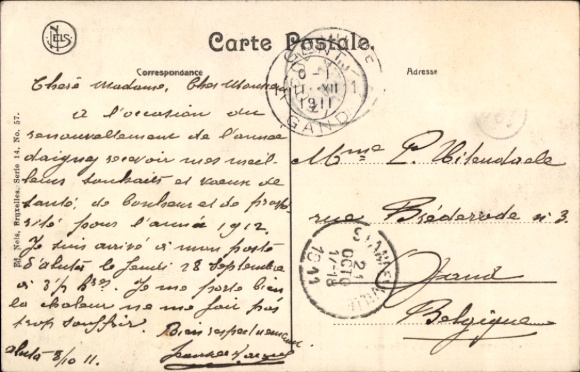 NELS
Carte Postale.
Correspondance
Adresse
Chère Madame, Cher Monsieur
à l'occasion du
renouvellement de l'année
daignez recevoir mes meil-
leurs souhaits et voeux de
santé, de bonheur et de prospé-
rité pour l'année 1912.
Je suis arrivé à mon poste
d'aketa le Jeudi 28 Septembre
à 3½ hres. Je me porte bien
la chaleur ne me fait pas
trop souffrir.
Bien respectueusement
8/10 11.
Mme P. Uitendaele
rue Bréderode n 3
Gand
Belgique
GENT
11 XII
1911
GAND
STANLEYVILLE
21
OCTO
17-18
1911
Ed. Nels, Bruxelles, Serie 14, No. 57.